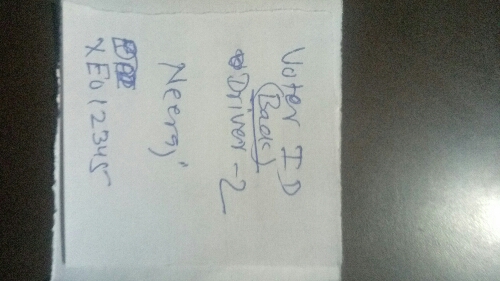 Voter ID
(Back)
Driver - 2
Neeraj
XE012345